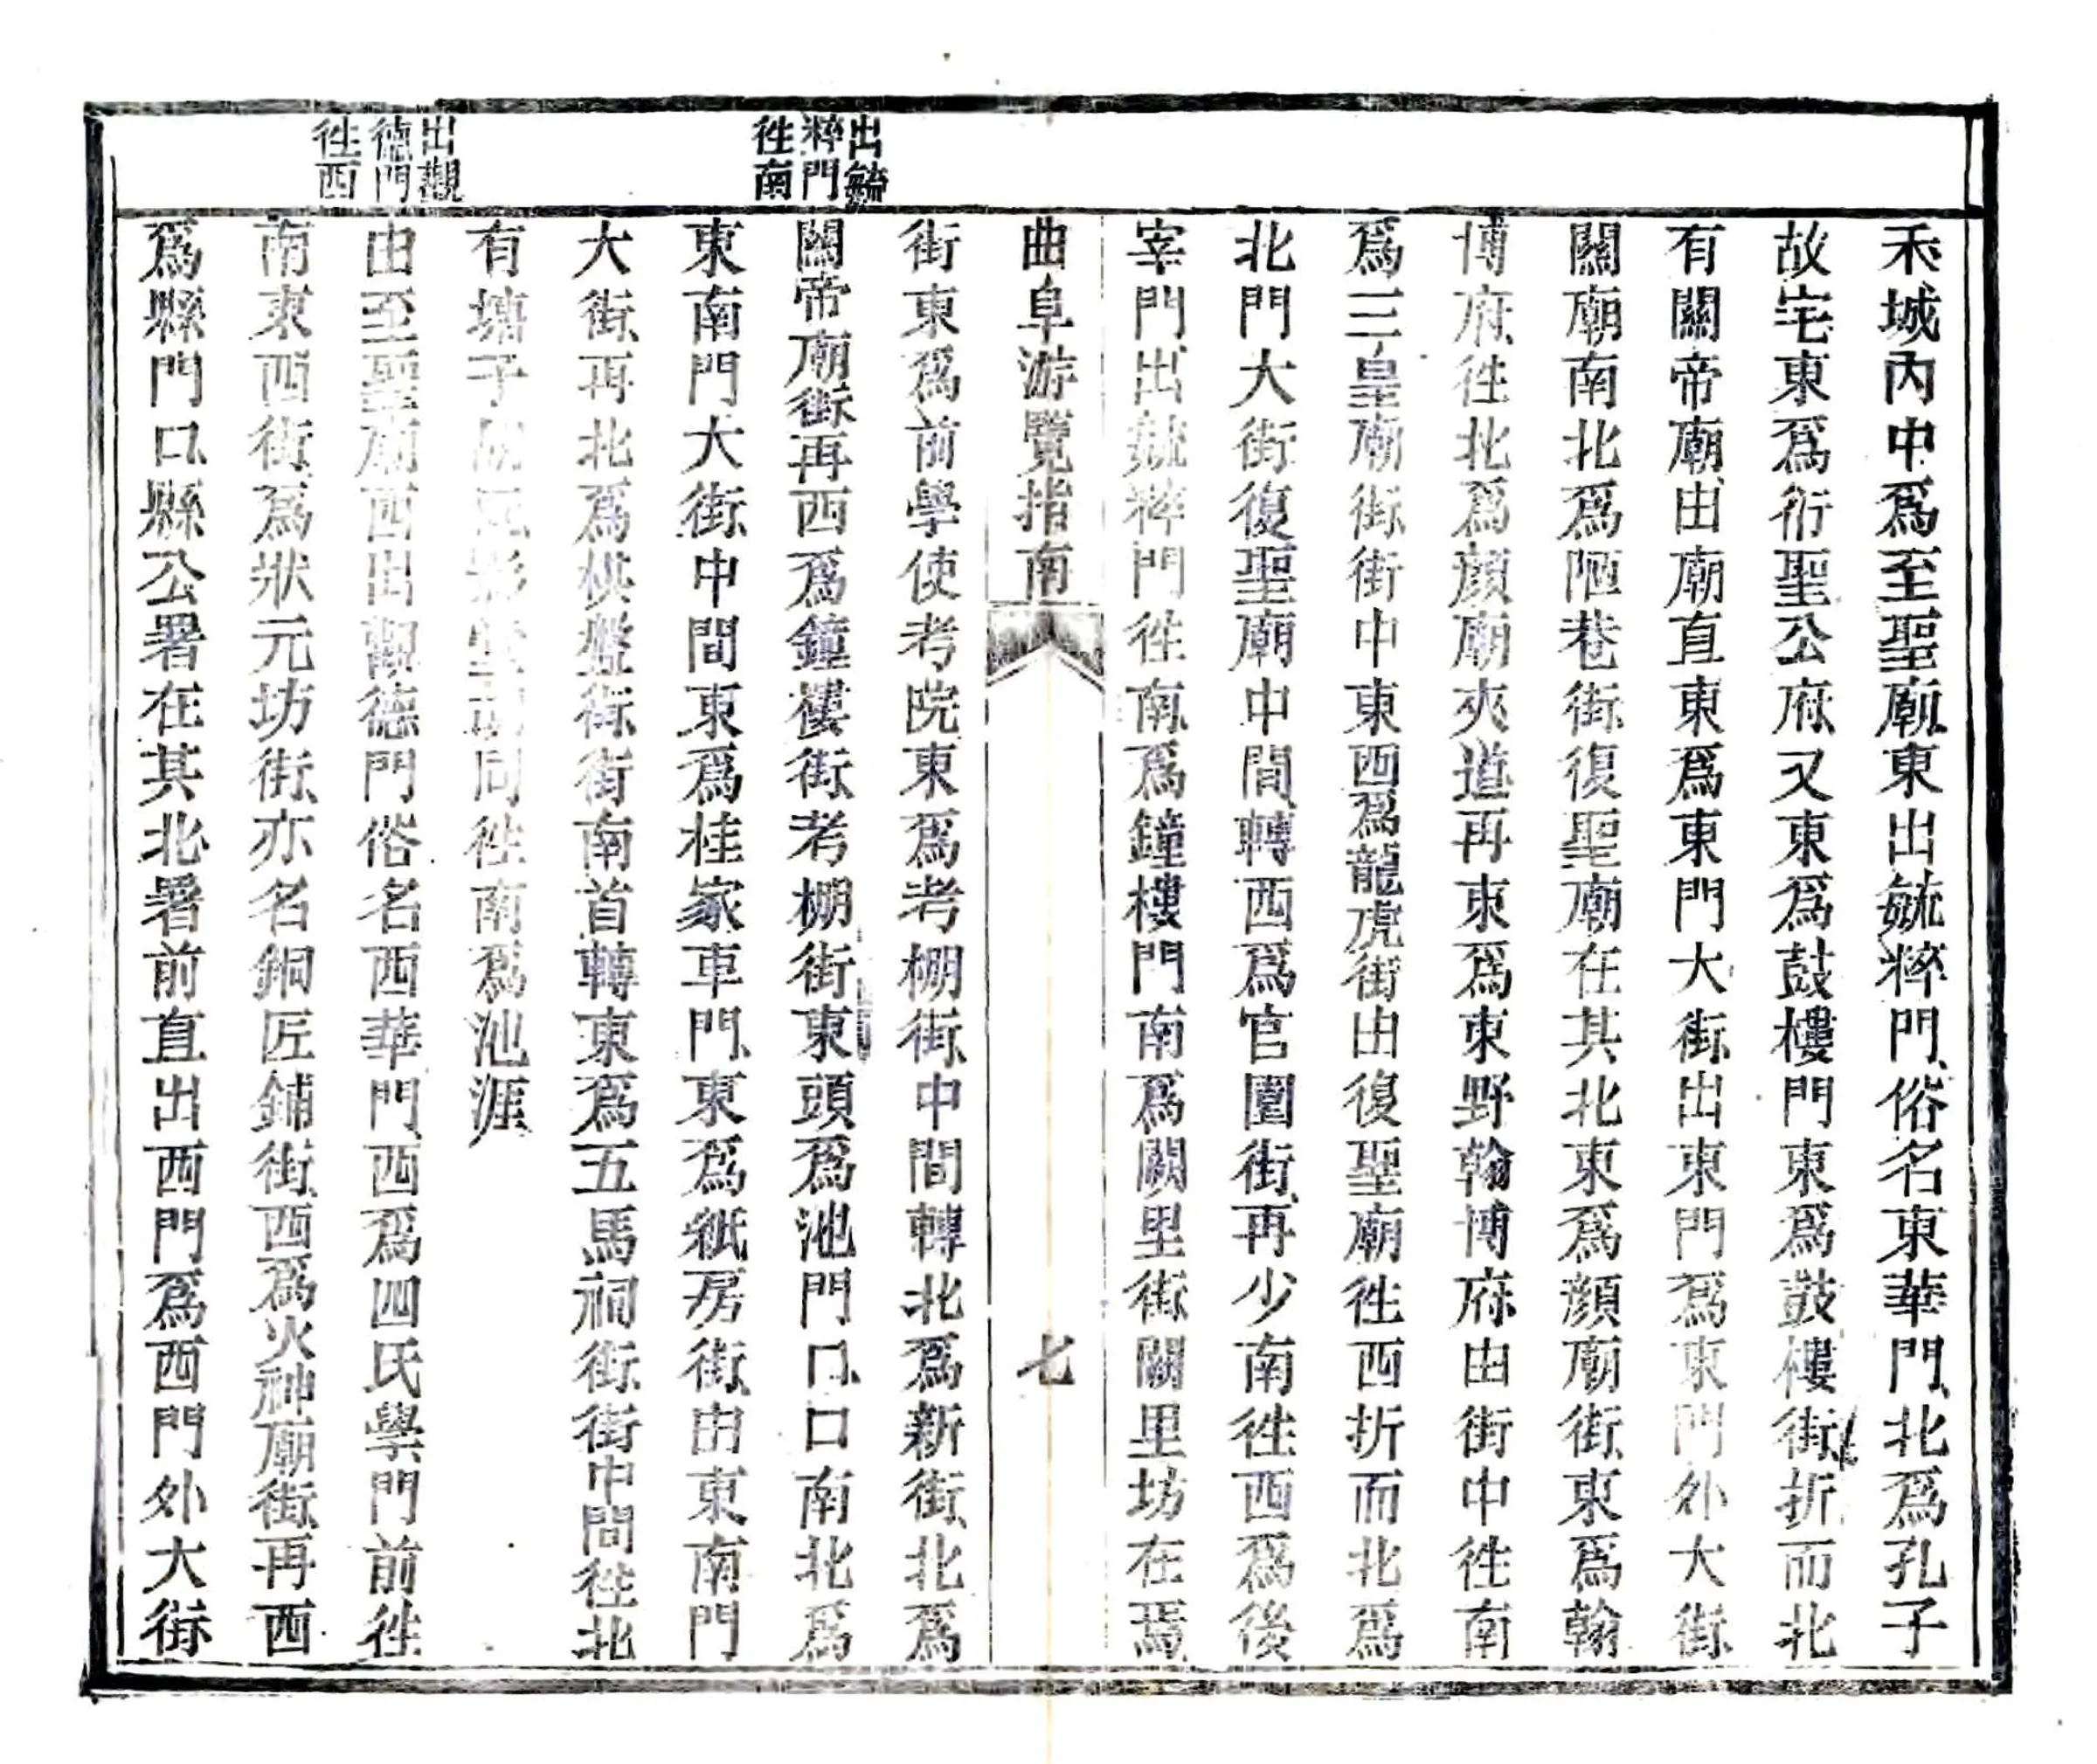 禾城內中爲至聖廟東出毓粹門、俗名東華門、北爲孔子
故宅東爲衍聖公府又東爲鼓樓門東爲鼓樓街、折而北
有關帝廟由廟直東爲東門大街、出東門爲東門外大街
關廟南北爲陋巷街、復聖廟在其北東爲顏廟街、東爲翰
博府、往北爲顏廟夾道再東爲東野翰博府由街中往南
爲三皇廟街、街中東西爲龍虎街由復聖廟往西折而北爲
北門大街復聖廟中間、轉西爲官園街、再少南往西爲後
宰門出毓粹門往南爲鐘樓門南爲闕里街闕里坊在焉
曲阜游覽指南
七
出毓
粹門
往南
街東爲前學使考院東爲考棚街、中間轉北爲新街、北爲
關帝廟街再西爲鐘樓街、考棚街東頭爲池門口、口南北爲
東南門大街、中間東爲桂家車門、東爲紙房街、由東南門
大街、再北爲棋盤街街南首轉東爲五馬祠街街中間往北
有塘子 同往南爲池涯
出觀
德門
往西
由至聖廟西出觀德門俗名西華門、西爲四氏學門前往
南東西街、爲狀元坊街、亦名銅匠鋪街、西爲火神廟街、再西
爲縣門口、縣公署在其北署前直出西門爲西門外大街